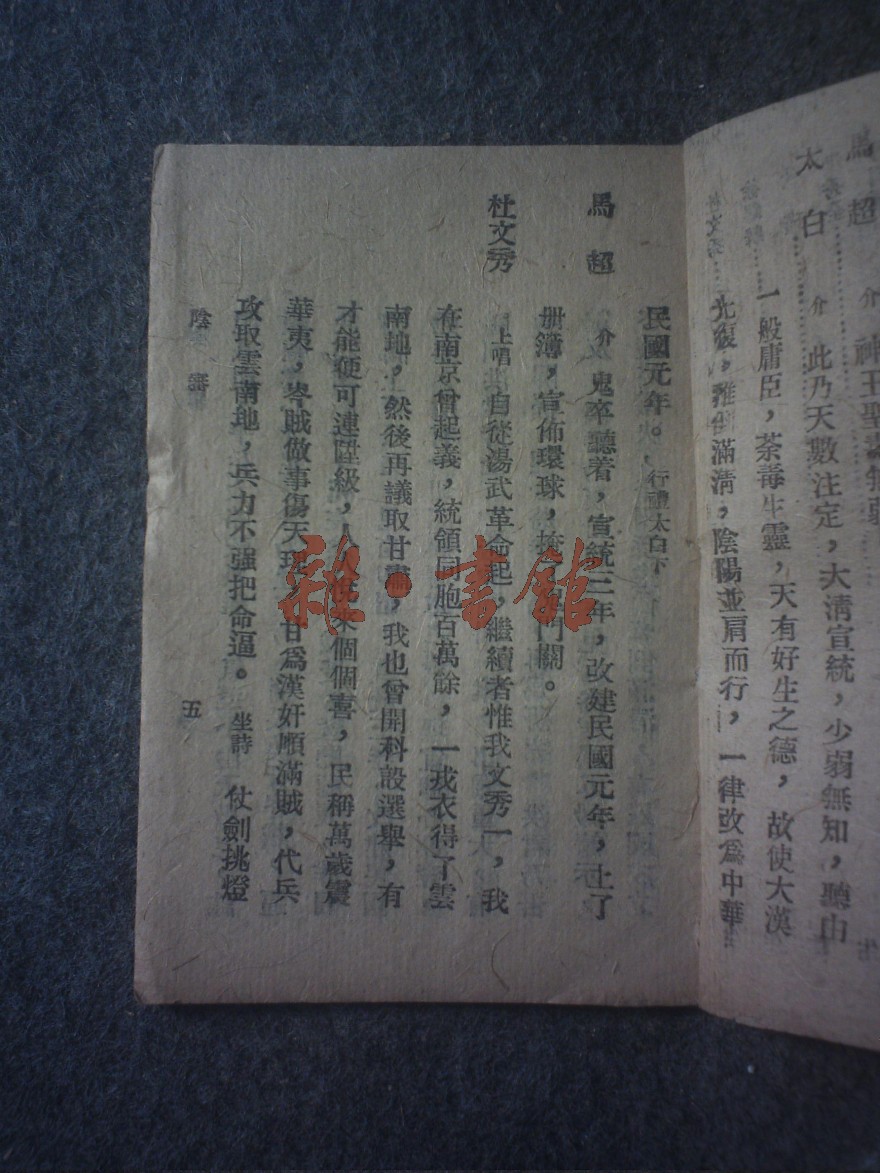 馬超 介 神王聖
太白 介 此乃天數注定，大清宣統，少弱無知，聽由
一般庸臣，荼毒生靈，天有好生之德，故使大漢
光復，推倒滿清，陰陽並肩而行，一律改爲中華
民國元年。行禮太白下
馬超 介 鬼卒聽着，宣統三年，改建民國元年，上了
册簿，宣佈環球，掩 門關。
杜文秀 上唱 自從湯武革命起，繼續者惟我文秀一，我
在南京曾起義，統領同胞百萬餘，一戎衣得了雲
南地，然後再議取甘肅，我也曾開科設選舉，有
才能便可連陞級，人 來個個喜，民稱萬歲震
華夷，岑賊做事傷天理，甘爲漢奸順滿賊，代兵
攻取雲南地，兵力不强把命逼。坐詩 仗劍挑燈
陰審 五
雜·書館